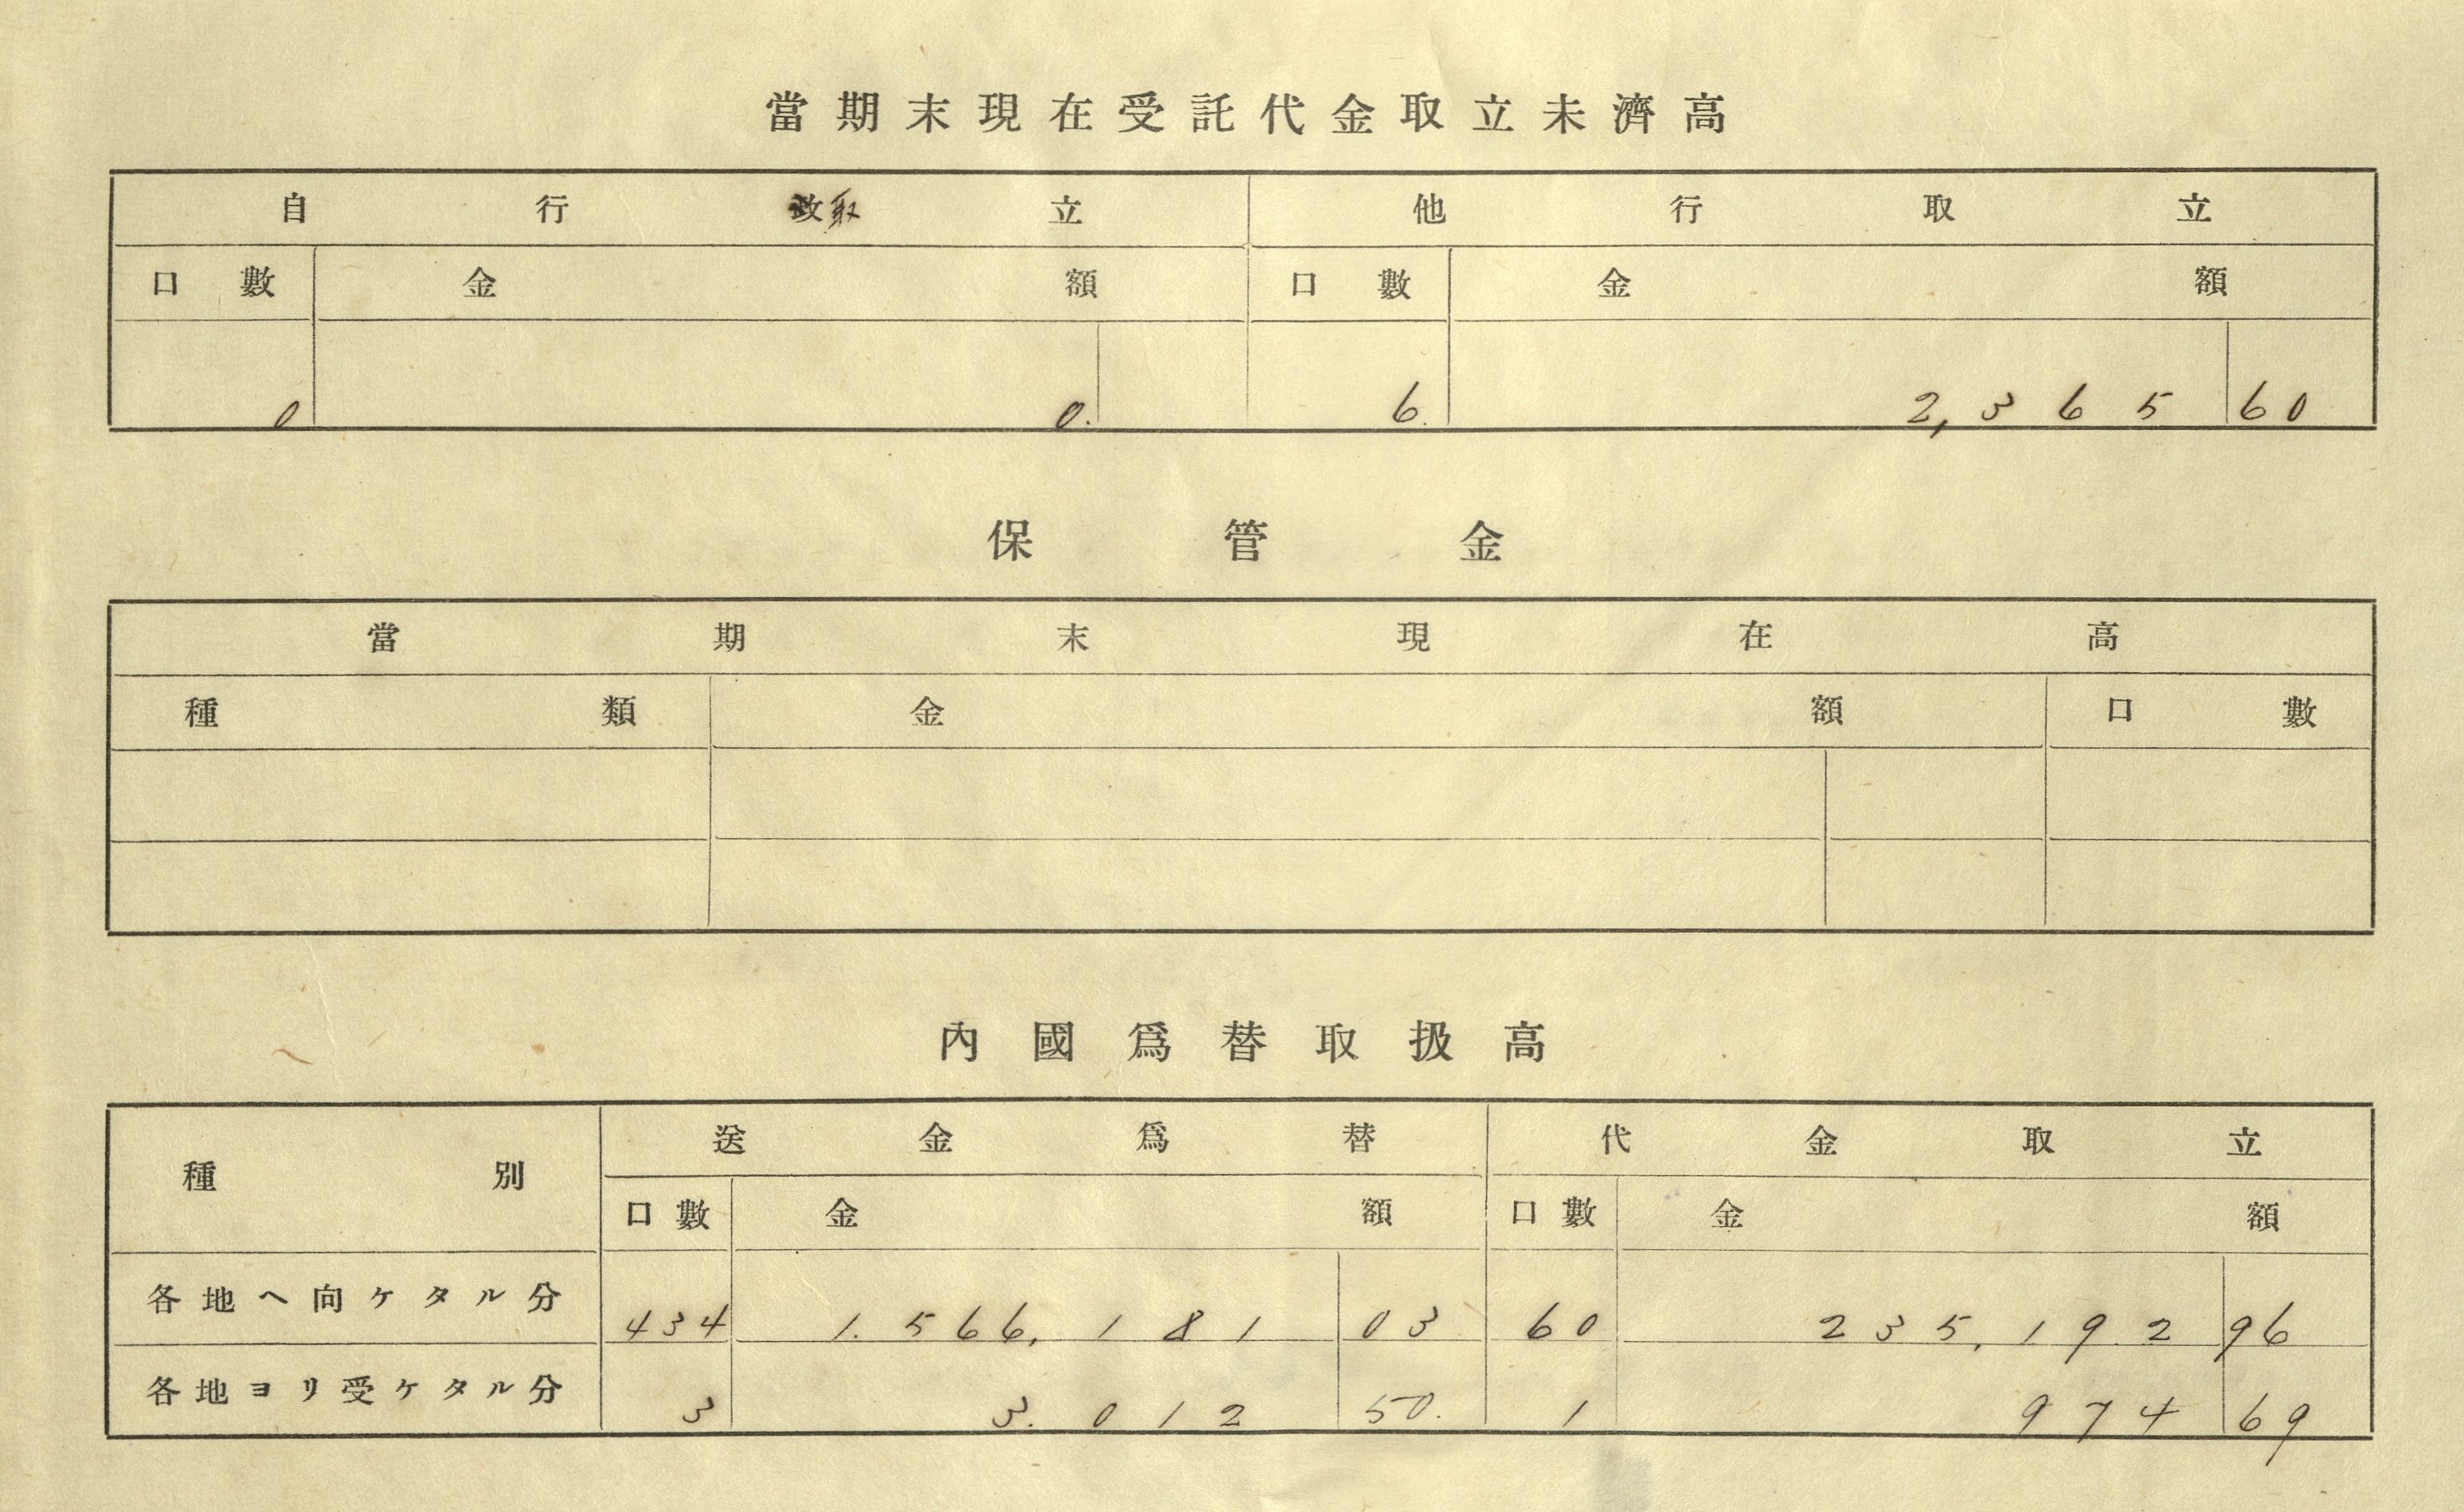 當期末現在受託代金取立未濟高
自行取立 他行取立
口數 金額 口數 金額
0 0. 6. 2,365 60
保管金
當期末現在高
種類 金額 口數
內國爲替取扱高
種別 送金爲替 代金取立
口數 金額 口數 金額
各地ヘ向ケタル分 434 1.566,181 03 60 235,192 96
各地ヨリ受ケタル分 3 3.012 50. 1 974 69